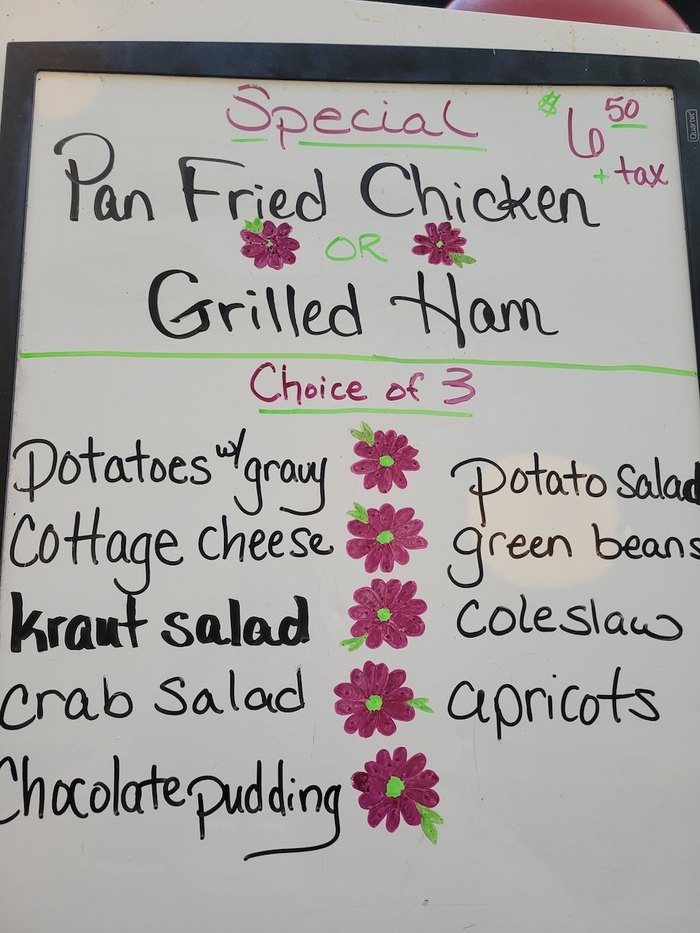 Special
$6 50
+ tax
Pan Fried Chicken
OR
Grilled Ham
Choice of 3
Potatoes w/ gravy
potato salad
Cottage cheese
green beans
kraut salad
coleslaw
Crab Salad
apricots
Chocolate pudding
Quartet